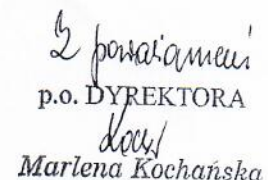 Z poważaniem
p.o. DYREKTORA
Marlena Kochańska